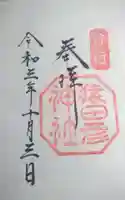 奉拝
猿田彦
神社
令和三年十月三日